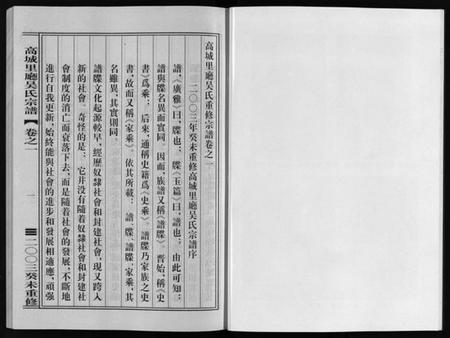 高城里廳吴氏宗譜卷之一
二〇〇三年癸未重修高城里廳吴氏宗譜序
譜、《廣雅》曰，牒也；牒《玉篇》曰，譜也；由此可知：
譜與牒名异而實同。因而，族譜又稱《譜牒》。晋始，稱《史
書》爲乘；后來，通稱史籍爲《史乘》。譜牒乃家族之史
書，故而又稱《家乘》。依其所載：譜、牒、譜牒、家乘，其
名雖异，其實則同。
譜牒文化起源較早，經歷奴隸社會和封建社會，現又跨入
新的社會。奇怪的是：它并没有隨着奴隸社會和封建社
會制度的消亡而衰落下去，而是隨着社會的發展，不斷地
進行自我更新，始終能與社會的進步和發展相適應，頑强
高城里廳吴氏宗譜
卷之一
一
二〇〇三癸未重修